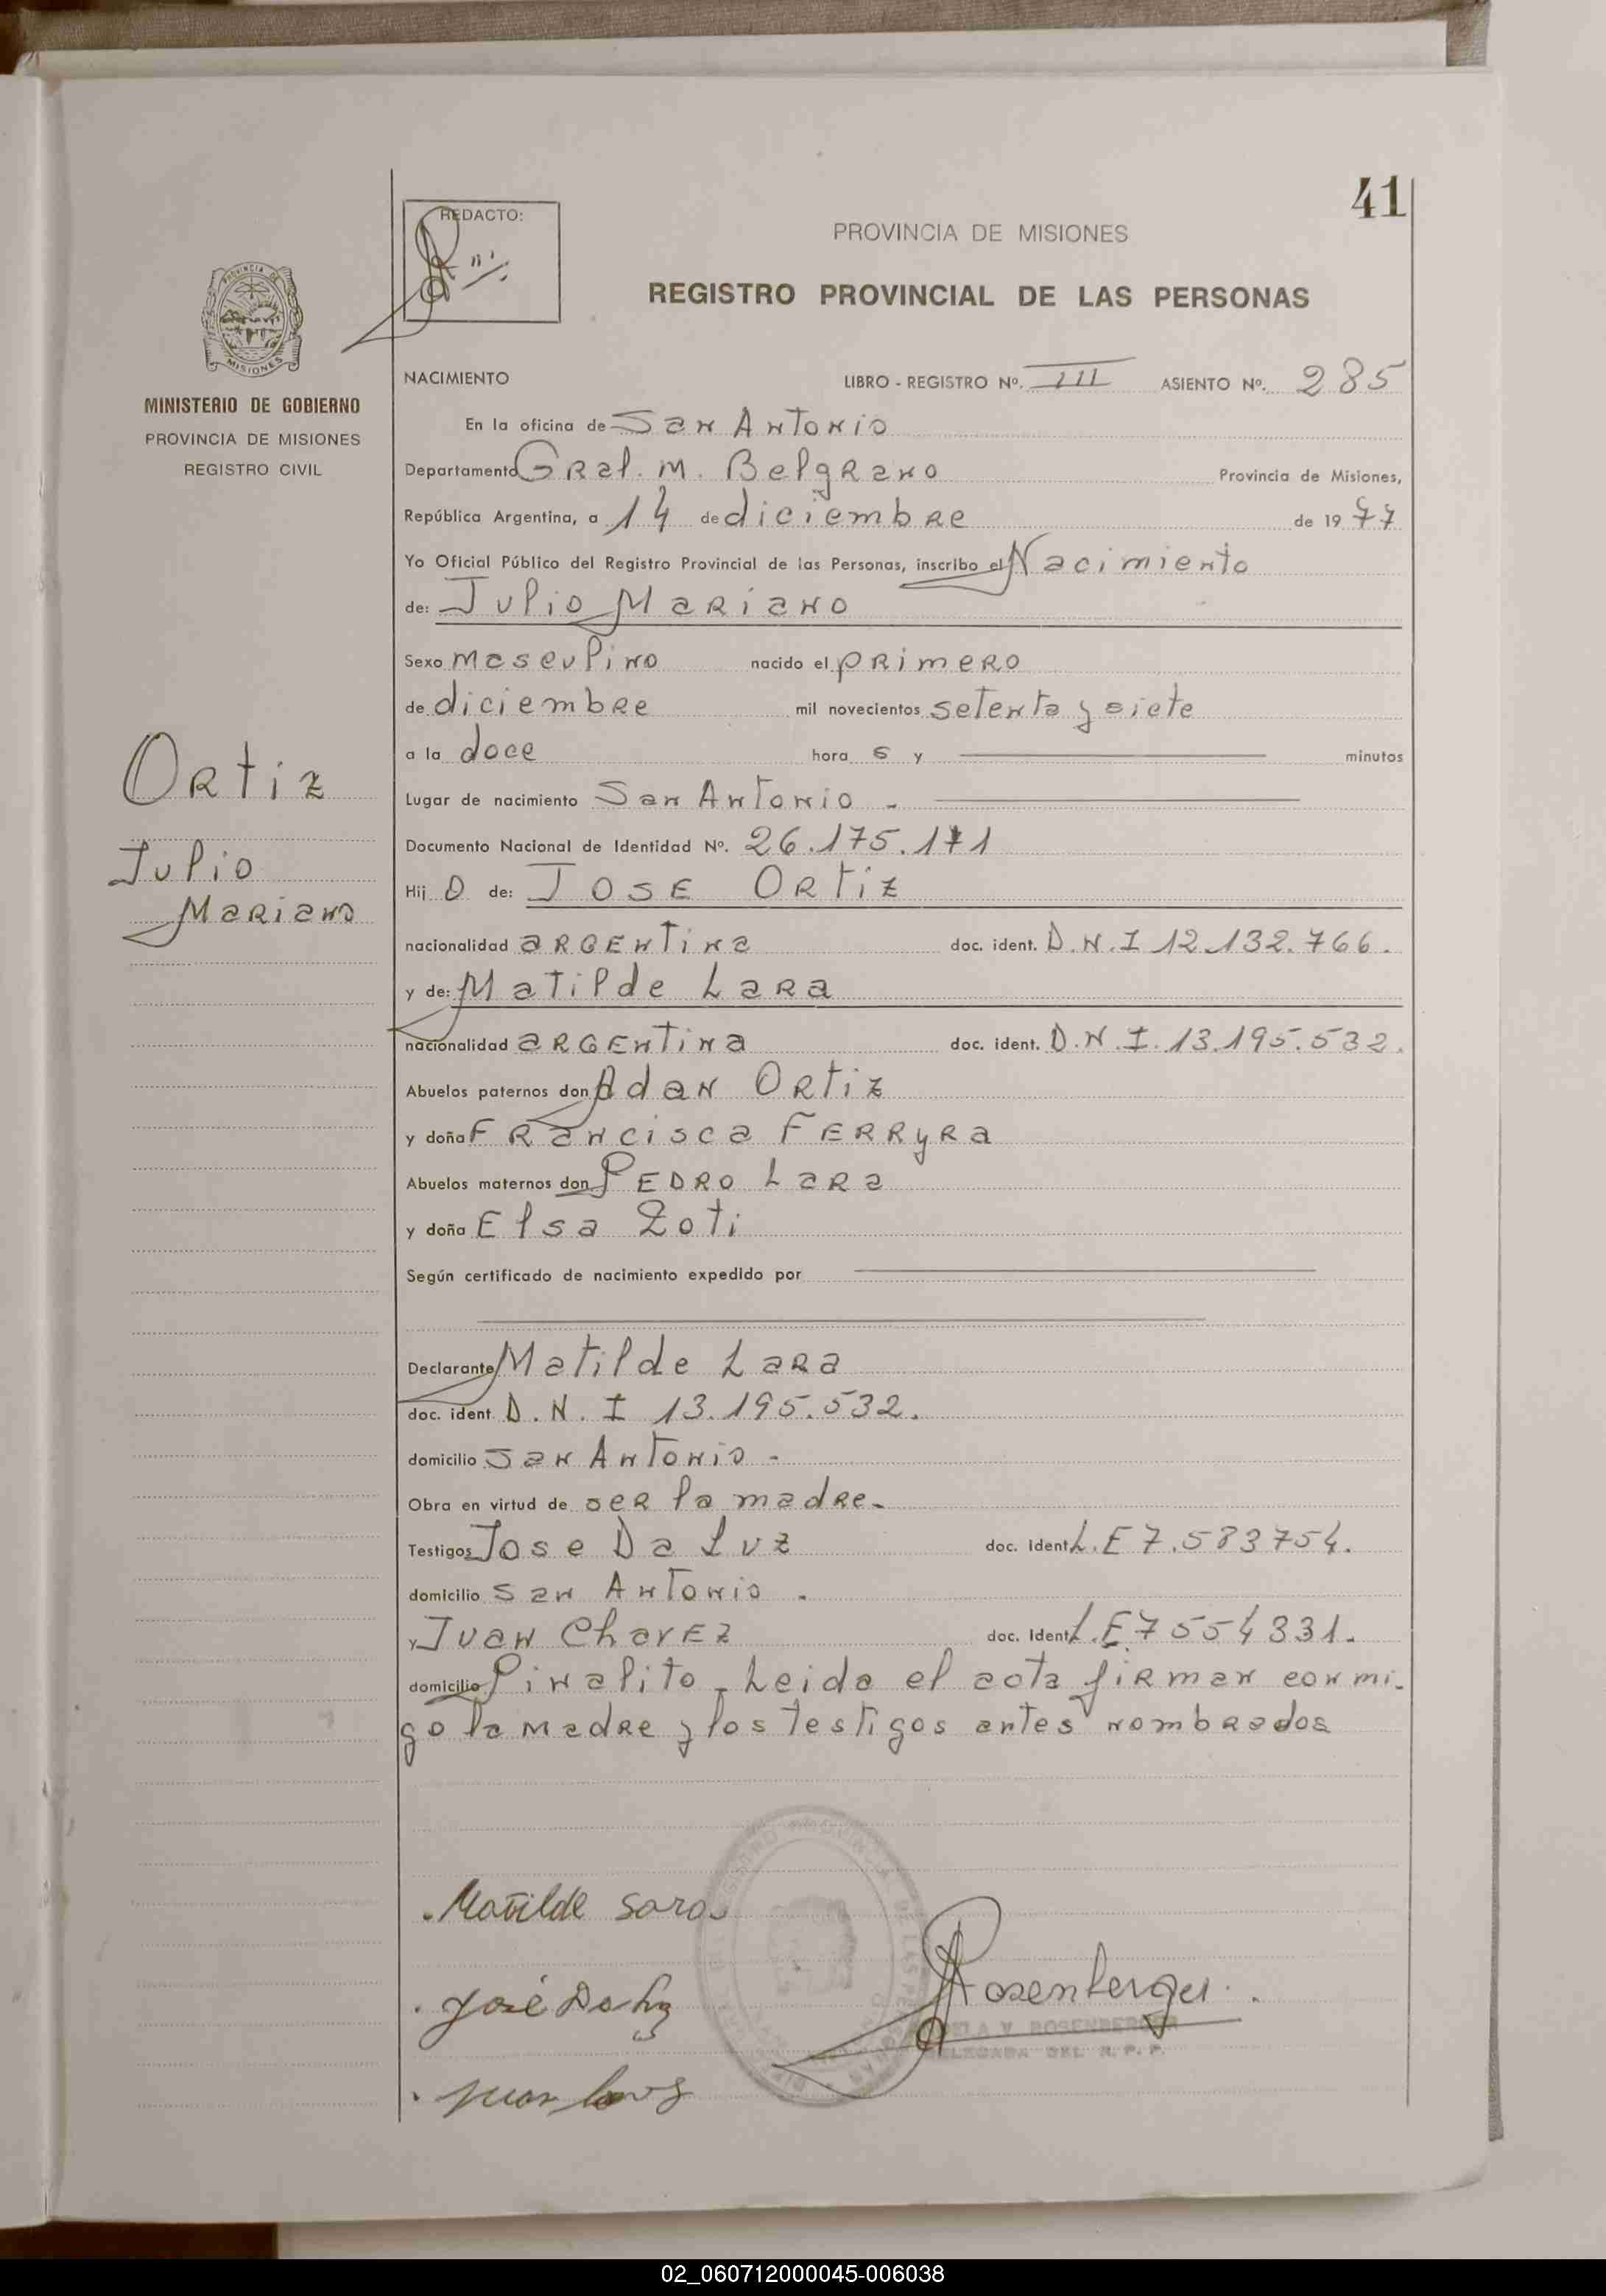 41
REDACTO:
PROVINCIA DE MISIONES
REGISTRO PROVINCIAL DE LAS PERSONAS
MISIONES
MINISTERIO DE GOBIERNO
PROVINCIA DE MISIONES
REGISTRO CIVIL
NACIMIENTO LIBRO - REGISTRO Nº. III ASIENTO Nº. 285
En la oficina de San Antonio
Departamento Gral. M. Belgrano Provincia de Misiones,
República Argentina, a 14 de diciembre de 1977
Yo Oficial Público del Registro Provincial de las Personas, inscribo el Nacimiento
de: Julio Mariano
Sexo masculino nacido el primero
de diciembre mil novecientos setenta y siete
a la doce hora s y minutos
Ortiz
Julio
Mariano
Lugar de nacimiento San Antonio -
Documento Nacional de Identidad Nº. 26.175.171
Hij o de: JOSE Ortiz
nacionalidad argentina doc. ident. D.N.I 12.132.766.
y de: Matilde Lara
nacionalidad argentina doc. ident. D.N.I. 13.195.532.
Abuelos paternos don Adan Ortiz
y doña Francisca Ferryra
Abuelos maternos don Pedro Lara
y doña Elsa Zoti
Según certificado de nacimiento expedido por
Declarante Matilde Lara
doc. ident. D.N.I 13.195.532.
domicilio San Antonio -
Obra en virtud de ser la madre-
Testigos Jose Da Luz doc. Ident L.E 7.583754.
domicilio San Antonio .
y Juan Chavez doc. Ident L.E.7554331.
domicilio Pinalito - Leida el acta firman conmi-
go la madre y los testigos antes nombrados
Matilde Lara
José Da Luz
Rosenberger
ROSENBERGER
DELEGADA DEL R.P.P.
02_060712000045-006038